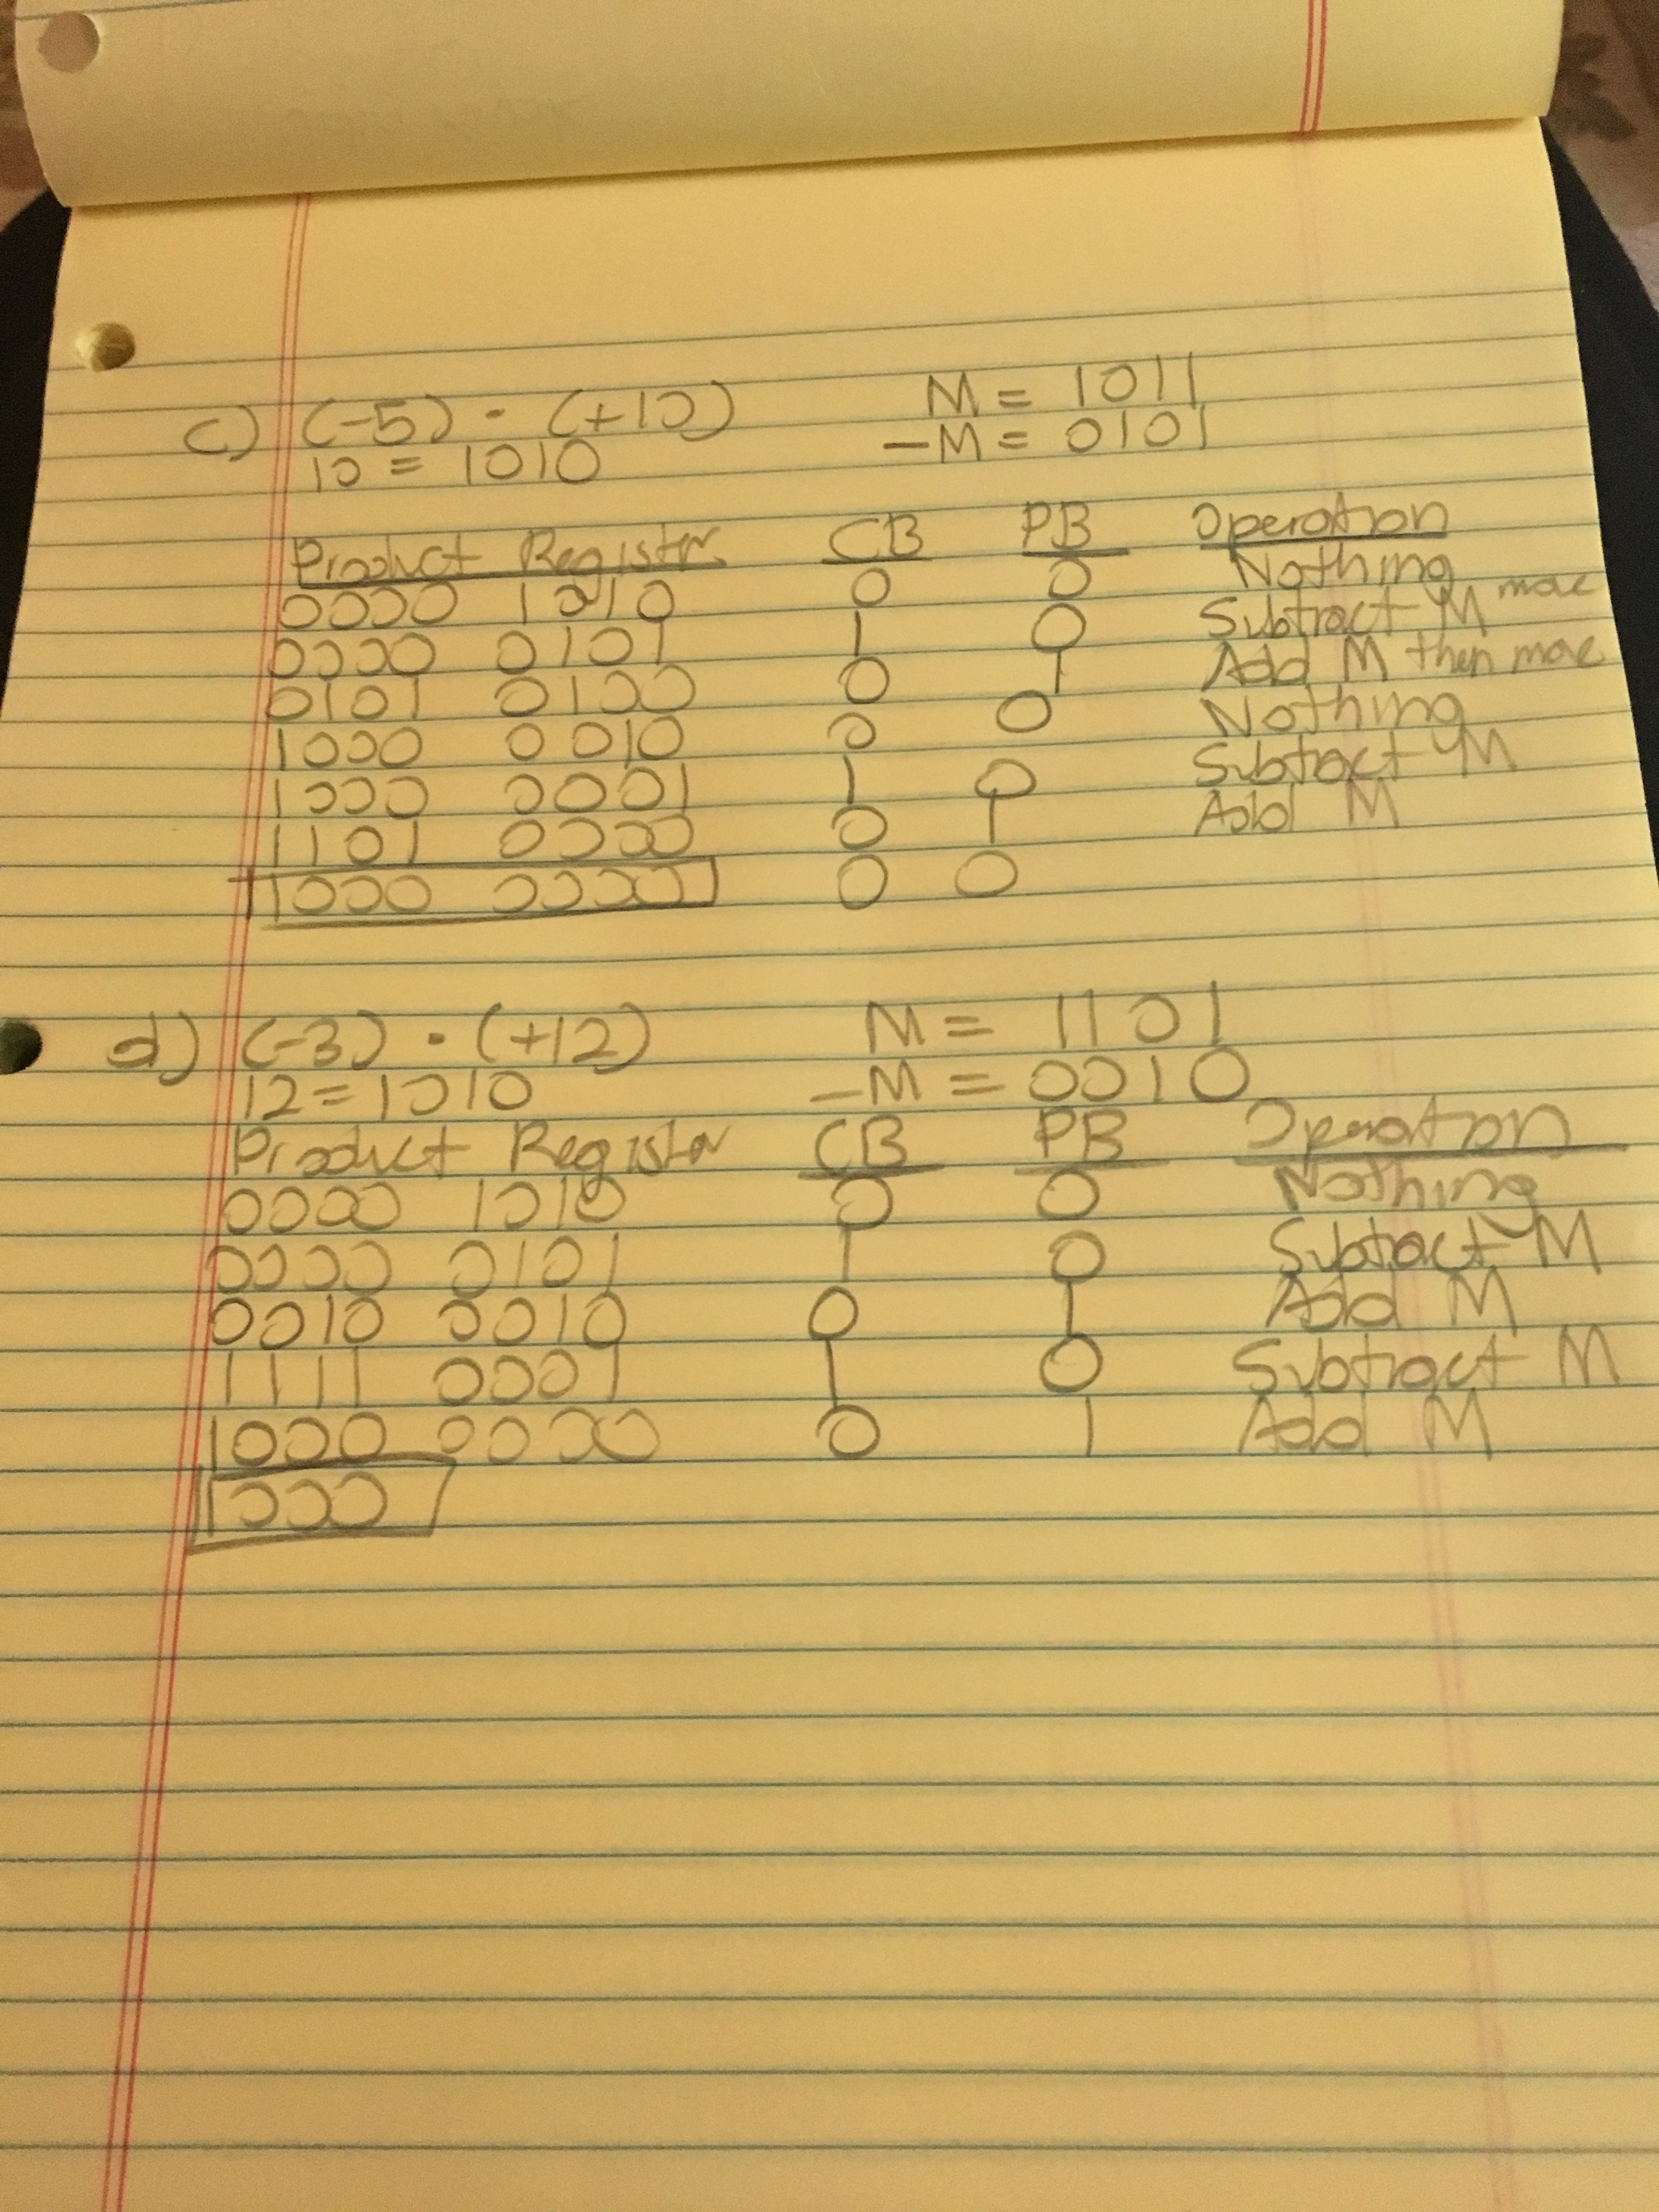 c) (-5) · (+10) M = 1011
10 = 1010 -M = 0101
Product Register CB PB Operation
0000 1010 0 0 Nothing
0000 0101 1 0 Subtract M move
0101 0100 0 1 Add M then move
1000 0010 0 0 Nothing
1000 0001 1 0 Subtract M
1101 0000 0 1 Add M
1000 0000 0 0
d) (-3) · (+12) M = 1101
12 = 1010 -M = 0010
Product Register CB PB Operation
0000 1010 0 0 Nothing
0000 0101 1 0 Subtract M
0010 0010 0 1 Add M
1111 0001 1 0 Subtract M
1000 0000 0 1 Add M
1000